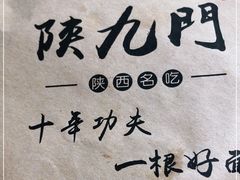 陕九門
陕西名吃
十年功夫
一根好面